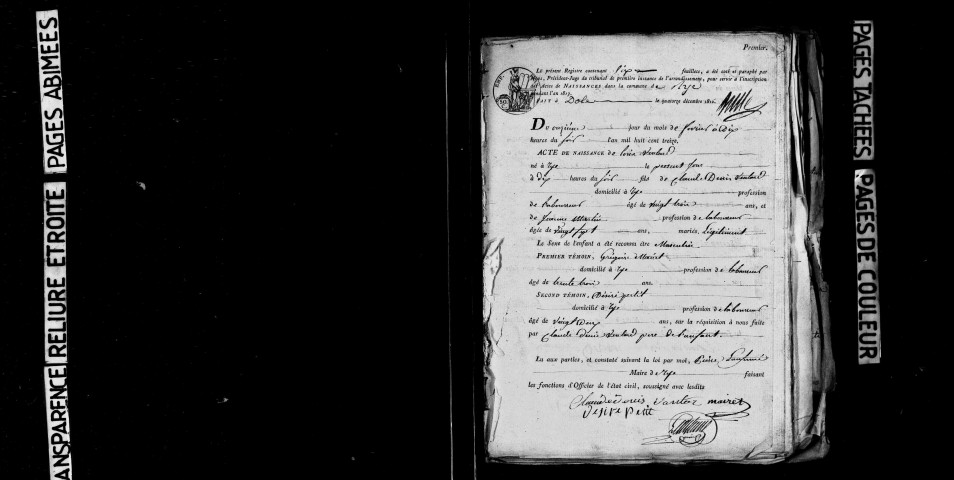 PAGES ABIMÉES
RELIURE ETROITE
ANSPARENCE
PAGES TACHÉES
PAGES DE COULEUR
Premier.
Le présent Registre contenant six feuillets, a été coté et paraphé par
Nous, Président-Juge du tribunal de première instance de l'arrondissement, pour servir à l'inscription
des actes de NAISSANCES dans la commune de Rye
pendant l'an 1813.
FAIT à Dole le quatorze décembre 1812.
DU onzième jour du mois de février à dix
heures du soir l'an mil huit cent treize,
ACTE DE NAISSANCE de
né à Rye le présent jour
à dix heures du soir fils de Claude Denis
domicilié à Rye profession
de laboureur âgé de vingt trois ans, et
de Jeanne profession de laboureur
âgée de vingt sept ans, mariés, légitiment
Le Sexe de l'enfant a été reconnu être Masculin.
PREMIER TÉMOIN, Grégoire Mairet
domicilié à Rye profession de laboureur
âgé de trente trois ans.
SECOND TÉMOIN, Désiré petit
domicilié à Rye profession de laboureur
âgé de vingt deux ans, sur la réquisition à nous faite
par Claude Denis père de l'enfant.
Lu aux parties, et constaté suivant la loi par moi, Pierre
Maire de Rye faisant
les fonctions d'Officier de l'état civil, soussigné avec lesdits
mairet
desire petit